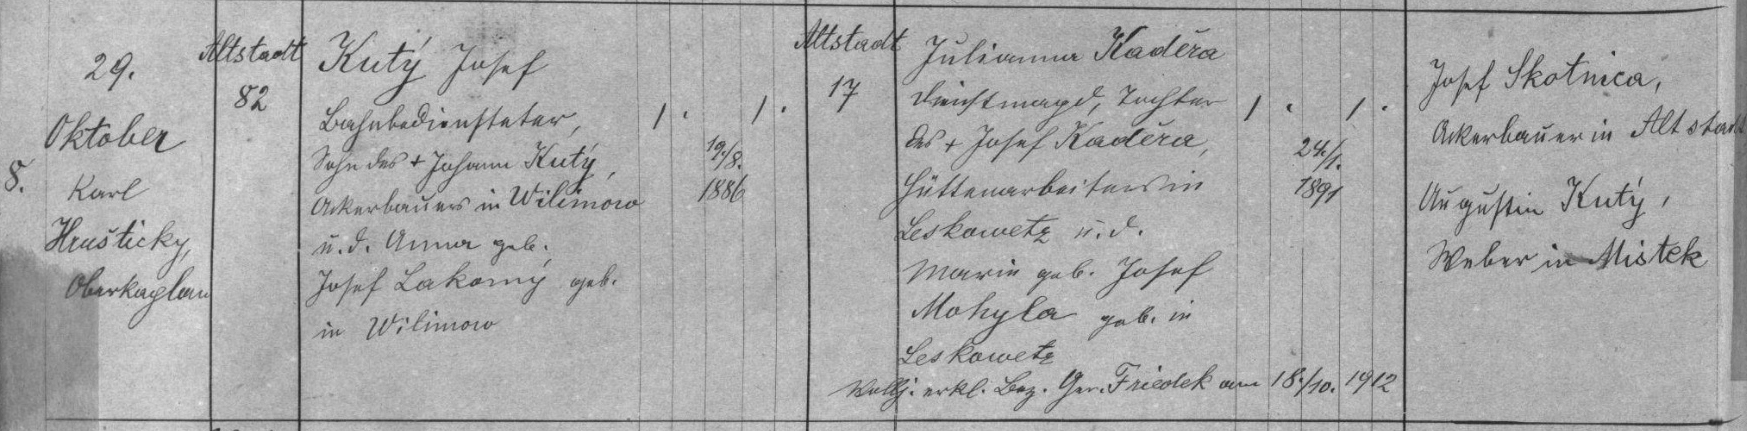 8.
29.
Oktober
Karl
Hrušticky,
Oberkaplan
Altstadt
82
Kutý Josef
Bahnbediensteter,
Sohn des + Johann Kutý,
Ackerbauers in Wilimow
u. d. Anna geb.
Josef Lakomý geb.
in Wilimow
1. 1.
19./8.
1886
Altstadt
17
Julianna Kaděra
Dienstmagd, Tochter
des + Josef Kaděra,
Hüttenarbeiters in
Leskowetz u. d.
Marie geb. Josef
Mohyla geb. in
Leskowetz
Vollj. erkl. Bez. Ger. Friedek am 18./10. 1912
1. 1.
24./1.
1891
Josef Skotnica,
Ackerbauer in Altstadt
Augustin Kutý,
Weber in Mistek